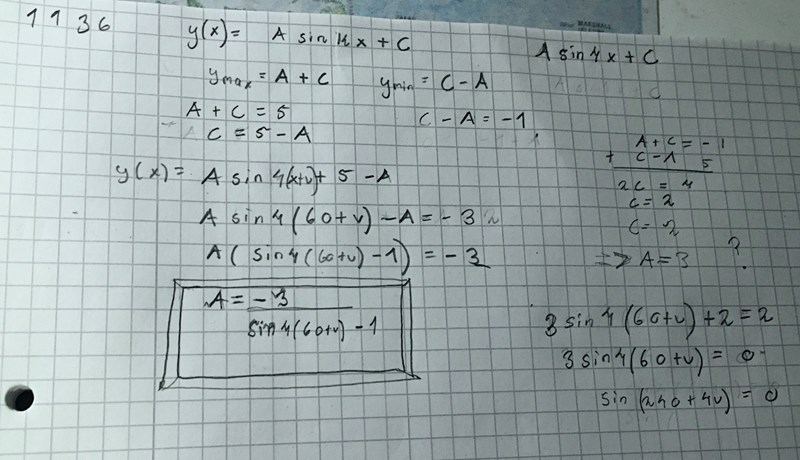 1136
y(x) = A sin 4x + C
y max = A + C
y min = C - A
A + C = 5
C = 5 - A
C - A = -1
y(x) = A sin 4(x+v) + 5 - A
A sin 4(60+v) - A = -3
A( sin 4(60+v) - 1) = -3
A = -3
sin 4(60+v) - 1
A sin 4x + C
A + C = -1
+ C - A 5
2C = 4
C = 2
C = 2
=> A = 3 ?
3 sin 4(60+v) + 2 = 2
3 sin 4(60+v) = 0
sin (240 + 4v) = 0